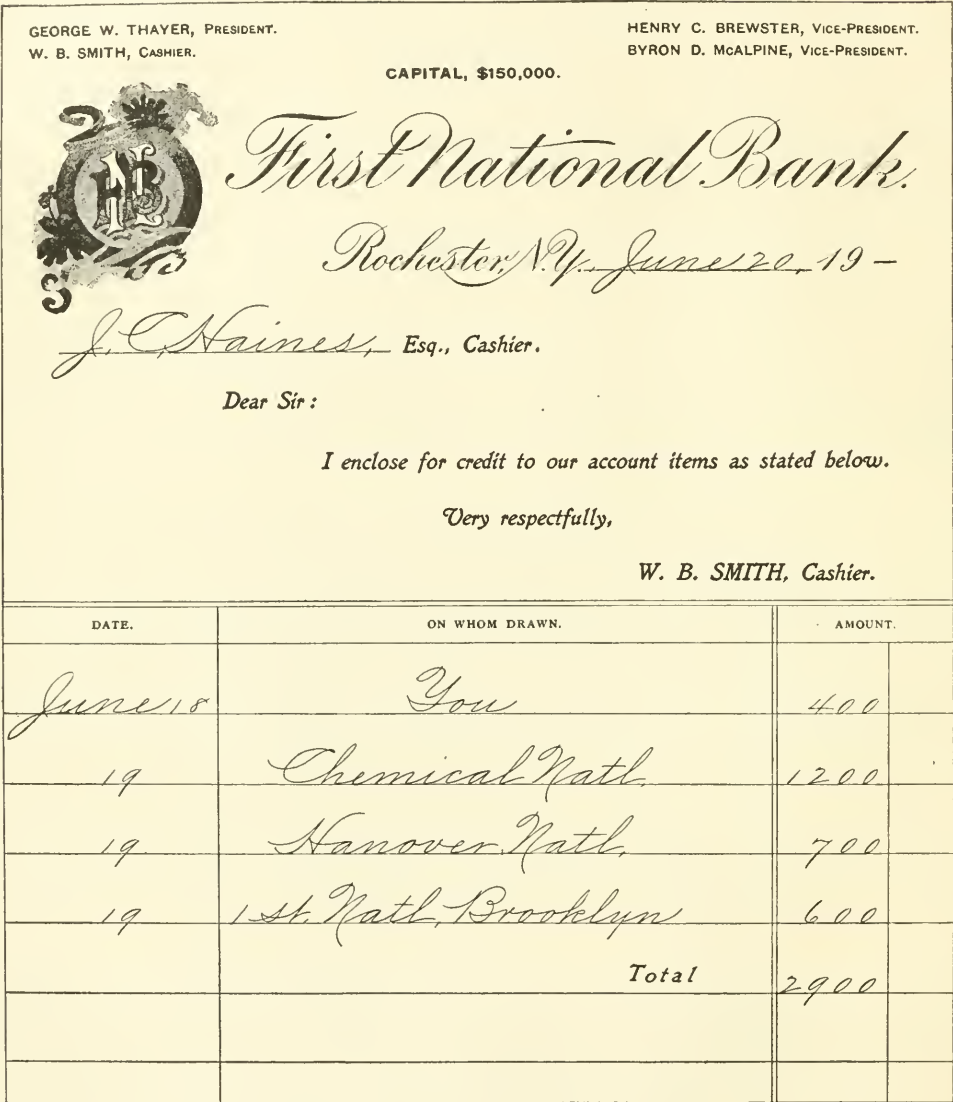 GEORGE W. THAYER, PRESIDENT.
W. B. SMITH, CASHIER.
HENRY C. BREWSTER, VICE-PRESIDENT.
BYRON D. McALPINE, VICE-PRESIDENT.
CAPITAL, $150,000.
First National Bank.
Rochester, N.Y. June 20, 19 –
J. C. Haines, Esq., Cashier.
Dear Sir:
I enclose for credit to our account items as stated below.
Very respectfully,
W. B. SMITH, Cashier.
DATE. ON WHOM DRAWN. AMOUNT.
June 18 You 400
19 Chemical Natl. 1200
19 Hanover Natl. 700
19 1st. Natl, Brooklyn 600
Total 2900